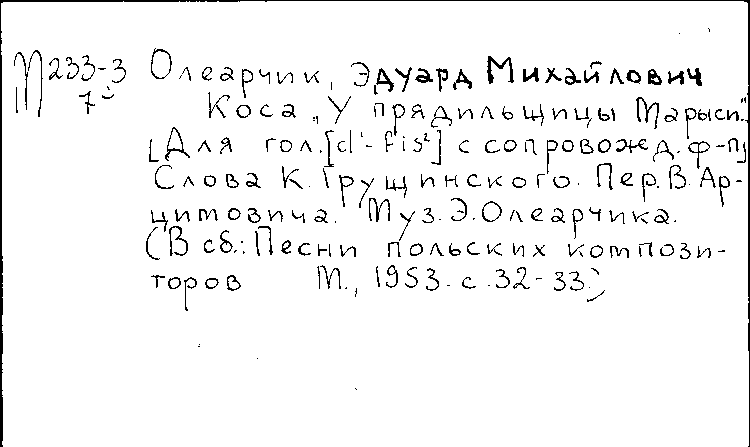 М233-3 Олеарчик, Эдуард Михайлович
7 Коса „У прядильщицы Марыси..."
[Для гол.[d¹-fis²] с сопровожд. ф-п]
Слова К. Грущинского. Пер. В. Ар-
цитовича. Муз. Э. Олеарчика.
(В сб.: Песни польских компози-
торов М., 1953. с. 32-33.)